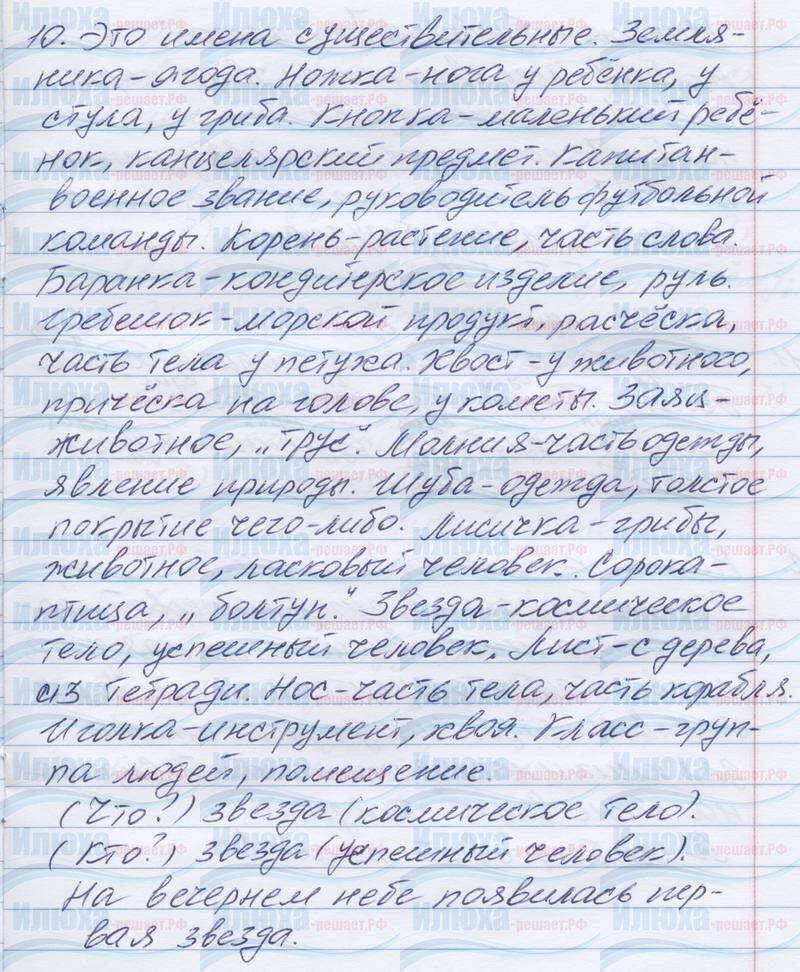 10. Это имена существительные. Земля-
ника-ягода. Ножка-нога у ребёнка, у
стула, у гриба. Кнопка-маленький ребё-
нок, канцелярский предмет. Капитан-
военное звание, руководитель футбольной
команды. Корень-растение, часть слова.
Баранка-кондитерское изделие, руль.
Гребешок-морской продукт, расчёска,
часть тела у петуха. Хвост-у животного,
причёска на голове, у кометы. Заяц-
животное, „трус". Молния-часть одежды,
явление природы. Шуба-одежда, толстое
покрытие чего-либо. Лисичка-грибы,
животное, ласковый человек. Сорока-
птица, „болтун." Звезда-космическое
тело, успешный человек. Лист-с дерева,
из тетради. Нос-часть тела, часть корабля.
Иголка-инструмент, хвоя. Класс-груп-
па людей, помещение.
(Что?) звезда (космическое тело).
(Кто?) звезда (успешный человек).
На вечернем небе появилась пер-
вая звезда.